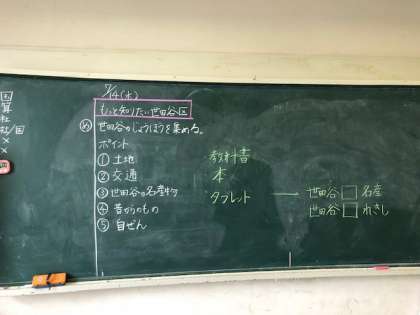 国
算
社
社/国
×
×
7/14(水)
もっと知りたい世田谷区
め 世田谷のじょうほうを集める。
ポイント
① 土地
② 交通
③ 世田谷の名産物
④ 昔からのもの
⑤ 自ぜん
教科書
本
タブレット — 世田谷□名産
世田谷□れきし